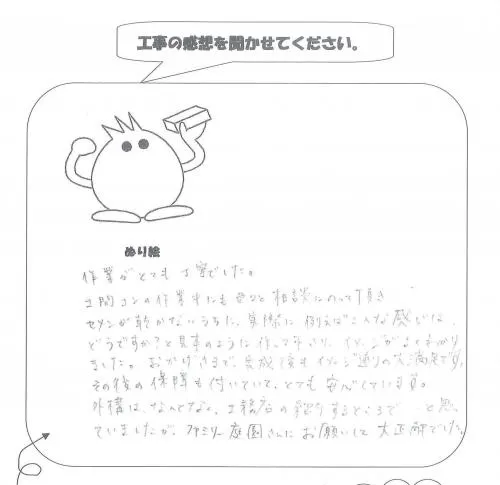 工事の感想を聞かせてください。
ぬり絵
作業がとても丁寧でした。
土間コンの作業中にも 色々と 相談にのって頂き
セメンが乾かないうちに、実際に 例えばこんな感じは、
どうですか?と見本のように作って下さり、イメージがよくわかり
ました。おかげさまで、完成後もイメージ通りの大満足です。
その後の保障も付いていて、とても安心しています。
外構は、なんとなく、工務店の するところで と思っ
ていましたが、ファミリー庭園さんにお願いして 大正解でした。